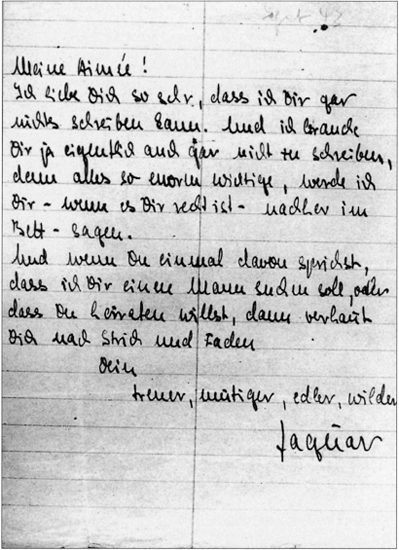 Sept 43
Meine Aimée!
Ich liebe Dich so sehr, dass ich Dir gar
nichts schreiben kann. Und ich brauche
Dir ja eigentlich auch gar nicht zu schreiben,
denn alles so enorm wichtige, werde ich
Dir - wenn es Dir recht ist - nachher im
Bett - sagen.
Und wenn Du einmal davon sprichst,
dass ich Dir einen Mann suchen soll, oder
dass Du heiraten willst, dann verhaut
Dich nach Strich und Faden
Dein
treuer, mutiger, edler, wilder
Jaguar